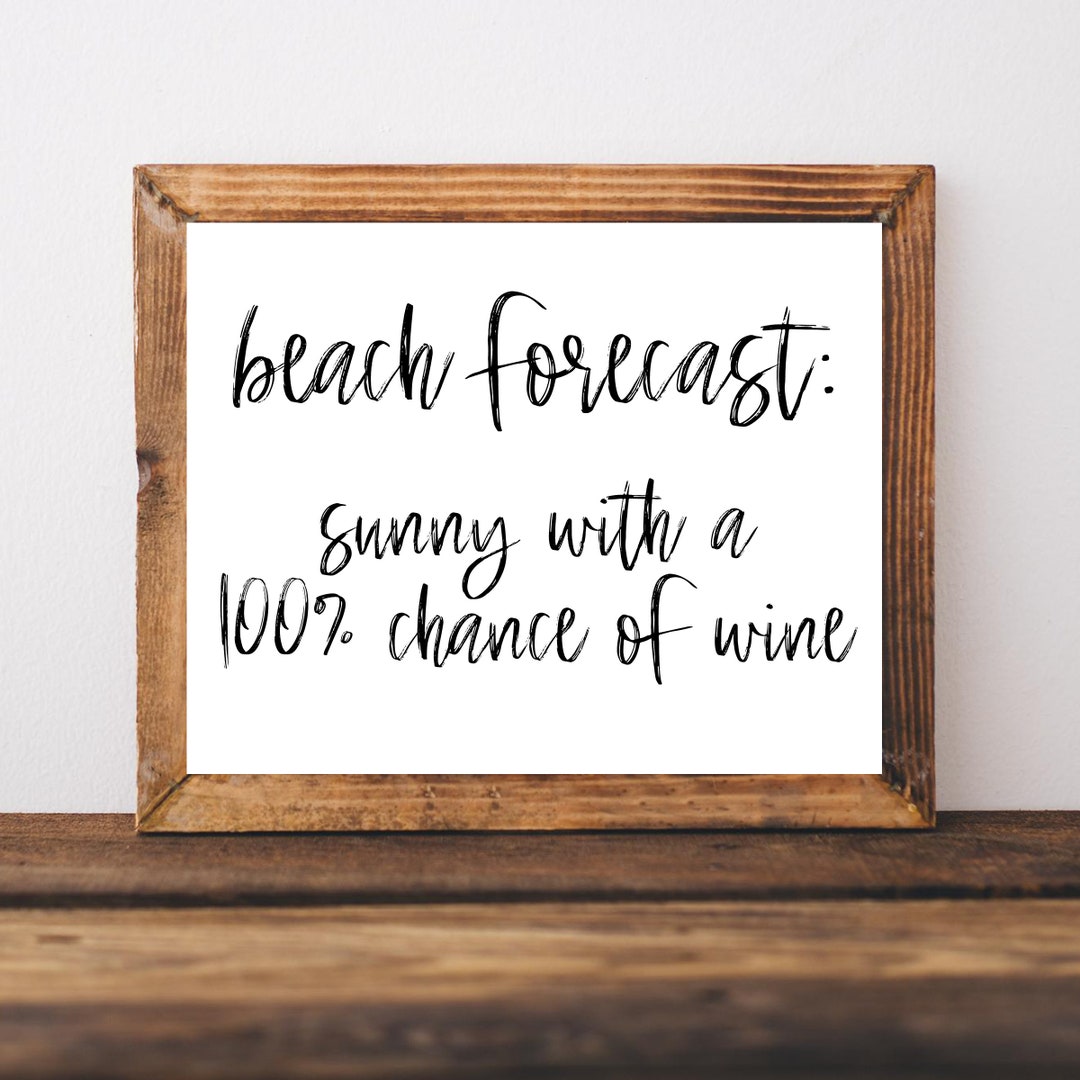 beach forecast:
sunny with a
100% chance of wine